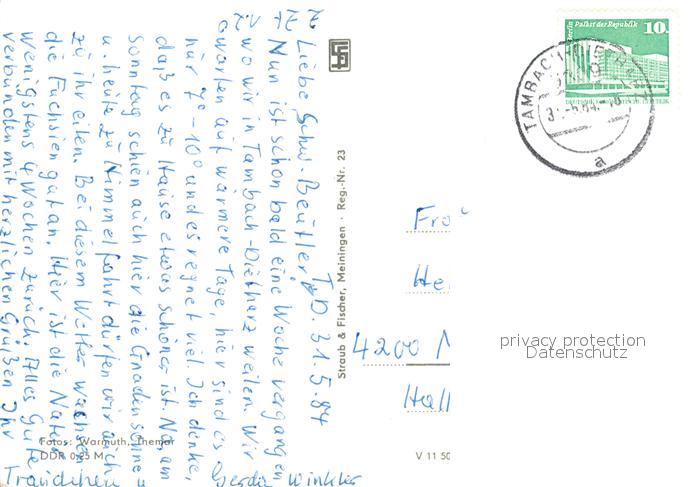 T.D. 31.5.84
Liebe Schw. Beutler,
Nun ist schon bald eine Woche vergangen
wo wir in Tambach-Dietharz weilen. Wir
warten auf wärmere Tage, hier sind es
nur 7°-10° und es regnet viel. Ich denke,
daß es zu Hause etwas schöner ist. Na, am
Sonntag schien auch hier die Gnadensonne
u. heute zu Himmelfahrt dürfen wir auch
zu ihr eilen. Bei diesem Wetter wachsen
die Fuchsien gut an. Hier ist die Natur
wenigstens 4 Wochen zurück. Alles Gute
verbunden mit herzlichen Grüßen Ihr
Traudchen
Gerda Winkler
Fotos: Warmuth, Themar
DDR 0,25 M
Straub & Fischer, Meiningen · Reg.-Nr. 23
V 11 50
Berlin Palast der Republik 10
TAMBACH-DIETHARZ
a
4200
privacy protection
Datenschutz